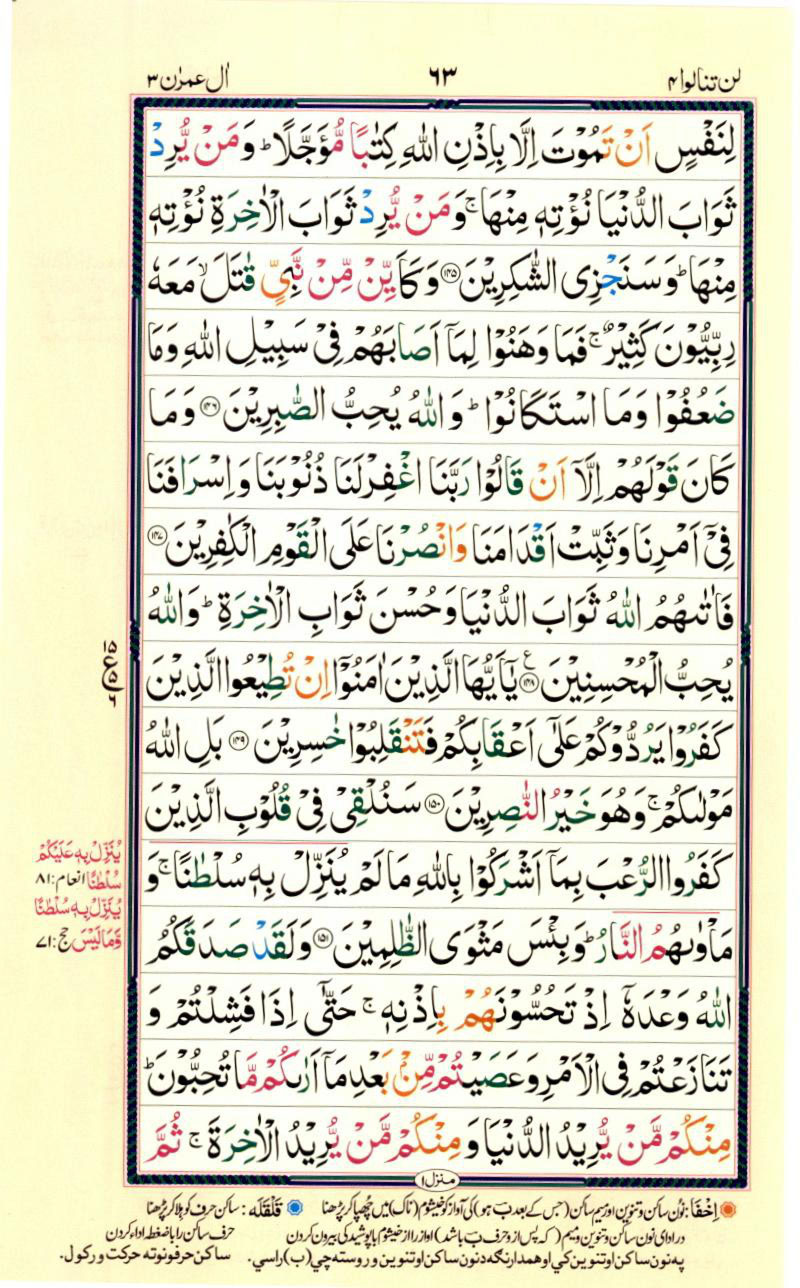 لن تنالوا ۴
۶۳
اٰل عمرٰن ۳
لِنَفْسٍ اَنْ تَمُوْتَ اِلَّا بِاِذْنِ اللّٰهِ كِتٰبًا مُّؤَجَّلًا ؕ وَمَنْ يُّرِدْ
ثَوَابَ الدُّنْيَا نُؤْتِهٖ مِنْهَا ۚ وَمَنْ يُّرِدْ ثَوَابَ الْاٰخِرَةِ نُؤْتِهٖ
مِنْهَا ؕ وَسَنَجْزِى الشّٰكِرِيْنَ ۝۱۴۵ وَكَاَيِّنْ مِّنْ نَّبِيٍّ قٰتَلَ ۙ مَعَهٗ
رِبِّيُّوْنَ كَثِيْرٌ ۚ فَمَا وَهَنُوْا لِمَاۤ اَصَابَهُمْ فِىْ سَبِيْلِ اللّٰهِ وَمَا
ضَعُفُوْا وَمَا اسْتَكَانُوْا ؕ وَاللّٰهُ يُحِبُّ الصّٰبِرِيْنَ ۝۱۴۶ وَمَا
كَانَ قَوْلَهُمْ اِلَّاۤ اَنْ قَالُوْا رَبَّنَا اغْفِرْلَنَا ذُنُوْبَنَا وَاِسْرَافَنَا
فِىْۤ اَمْرِنَا وَثَبِّتْ اَقْدَامَنَا وَانْصُرْنَا عَلَى الْقَوْمِ الْكٰفِرِيْنَ ۝۱۴۷
فَاٰتٰىهُمُ اللّٰهُ ثَوَابَ الدُّنْيَا وَحُسْنَ ثَوَابِ الْاٰخِرَةِ ؕ وَاللّٰهُ
يُحِبُّ الْمُحْسِنِيْنَ ۝۱۴۸ ع يٰۤاَيُّهَا الَّذِيْنَ اٰمَنُوْۤا اِنْ تُطِيْعُوا الَّذِيْنَ
كَفَرُوْا يَرُدُّوْكُمْ عَلٰٓى اَعْقَابِكُمْ فَتَنْقَلِبُوْا خٰسِرِيْنَ ۝۱۴۹ بَلِ اللّٰهُ
مَوْلٰىكُمْ ۚ وَهُوَ خَيْرُ النّٰصِرِيْنَ ۝۱۵۰ سَنُلْقِىْ فِىْ قُلُوْبِ الَّذِيْنَ
كَفَرُوا الرُّعْبَ بِمَاۤ اَشْرَكُوْا بِاللّٰهِ مَا لَمْ يُنَزِّلْ بِهٖ سُلْطٰنًا ۚ وَ
مَاْوٰىهُمُ النَّارُ ؕ وَبِئْسَ مَثْوَى الظّٰلِمِيْنَ ۝۱۵۱ وَلَقَدْ صَدَقَكُمُ
اللّٰهُ وَعْدَهٗۤ اِذْ تَحُسُّوْنَهُمْ بِاِذْنِهٖ ۚ حَتّٰۤى اِذَا فَشِلْتُمْ وَ
تَنَازَعْتُمْ فِى الْاَمْرِ وَعَصَيْتُمْ مِّنْۢ بَعْدِ مَاۤ اَرٰىكُمْ مَّا تُحِبُّوْنَ ؕ
مِنْكُمْ مَّنْ يُّرِيْدُ الدُّنْيَا وَمِنْكُمْ مَّنْ يُّرِيْدُ الْاٰخِرَةَ ۚ ثُمَّ
يُنَزِّلْ بِهٖ عَلَيْكُمْ
سُلْطٰنًا انعام: ۸۱
يُنَزِّلْ بِهٖ سُلْطٰنًا
وَّمَا لَيْسَ حج: ۷۱
منزل ۱
اِخفَا: نُون ساکن و تنوین اور میم ساکن (جس کے بعد ب ہو) کی آواز کو خیشوم (ناک) میں چُھپا کر پڑھنا
قَلقَلَہ: ساکن حرف کو ہلا کر پڑھنا
در ادای نون ساکن و تنوین و میم (که پس از و حرف ب باشد) اواز را از خیشوم با پوشیدگی بیرون کردن
حرف ساکن را با ضغطه اداء کردن
په نون ساکن او تنوین کي او همدارنګه د نون ساکن او تنوین و روسته چي (ب) راسي.
ساکن حرفونو ته حرکت ورکول.